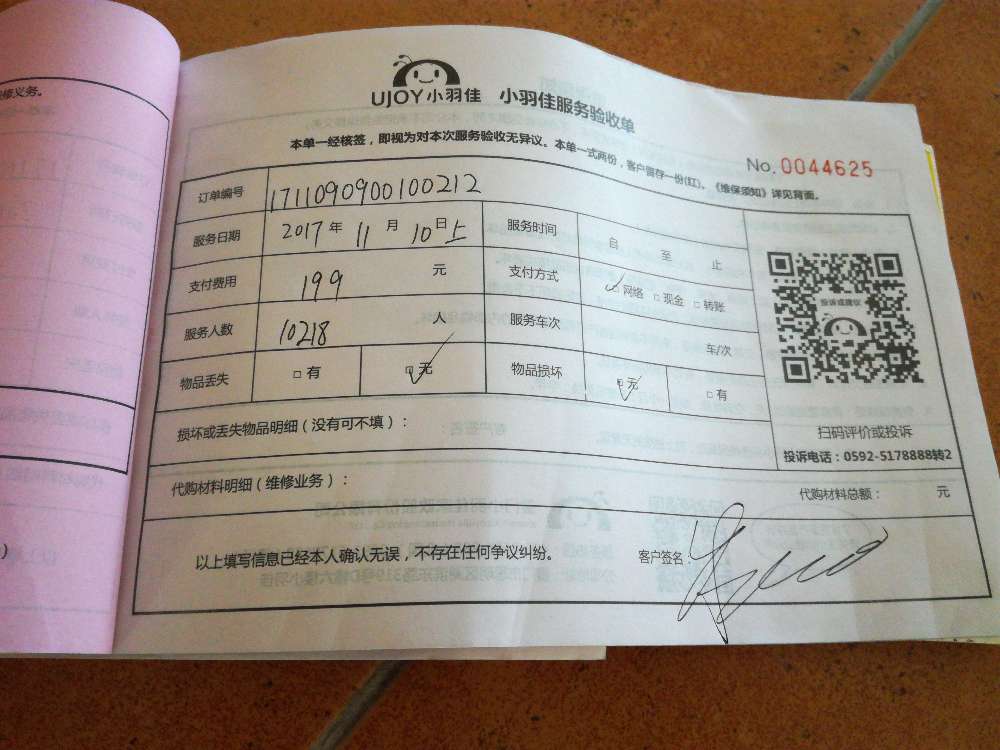 修义务。
UJOY小羽佳 小羽佳服务验收单
本单一经核签，即视为对本次服务验收无异议。本单一式两份，客户留存一份(红)。《维保须知》详见背面。
No.0044625
订单编号 1711090900100212
服务日期 2017年 11月 10日上 服务时间 自 至 止
支付费用 199 元 支付方式 ☑网络 □现金 □转账
服务人数 10218 人 服务车次 车/次
物品丢失 □有 ☑无 物品损坏 ☑无 □有
投诉或建议
扫码评价或投诉
投诉电话：0592-5178888转2
损坏或丢失物品明细（没有可不填）：
代购材料明细（维修业务）： 代购材料总额： 元
以上填写信息已经本人确认无误，不存在任何争议纠纷。 客户签名：